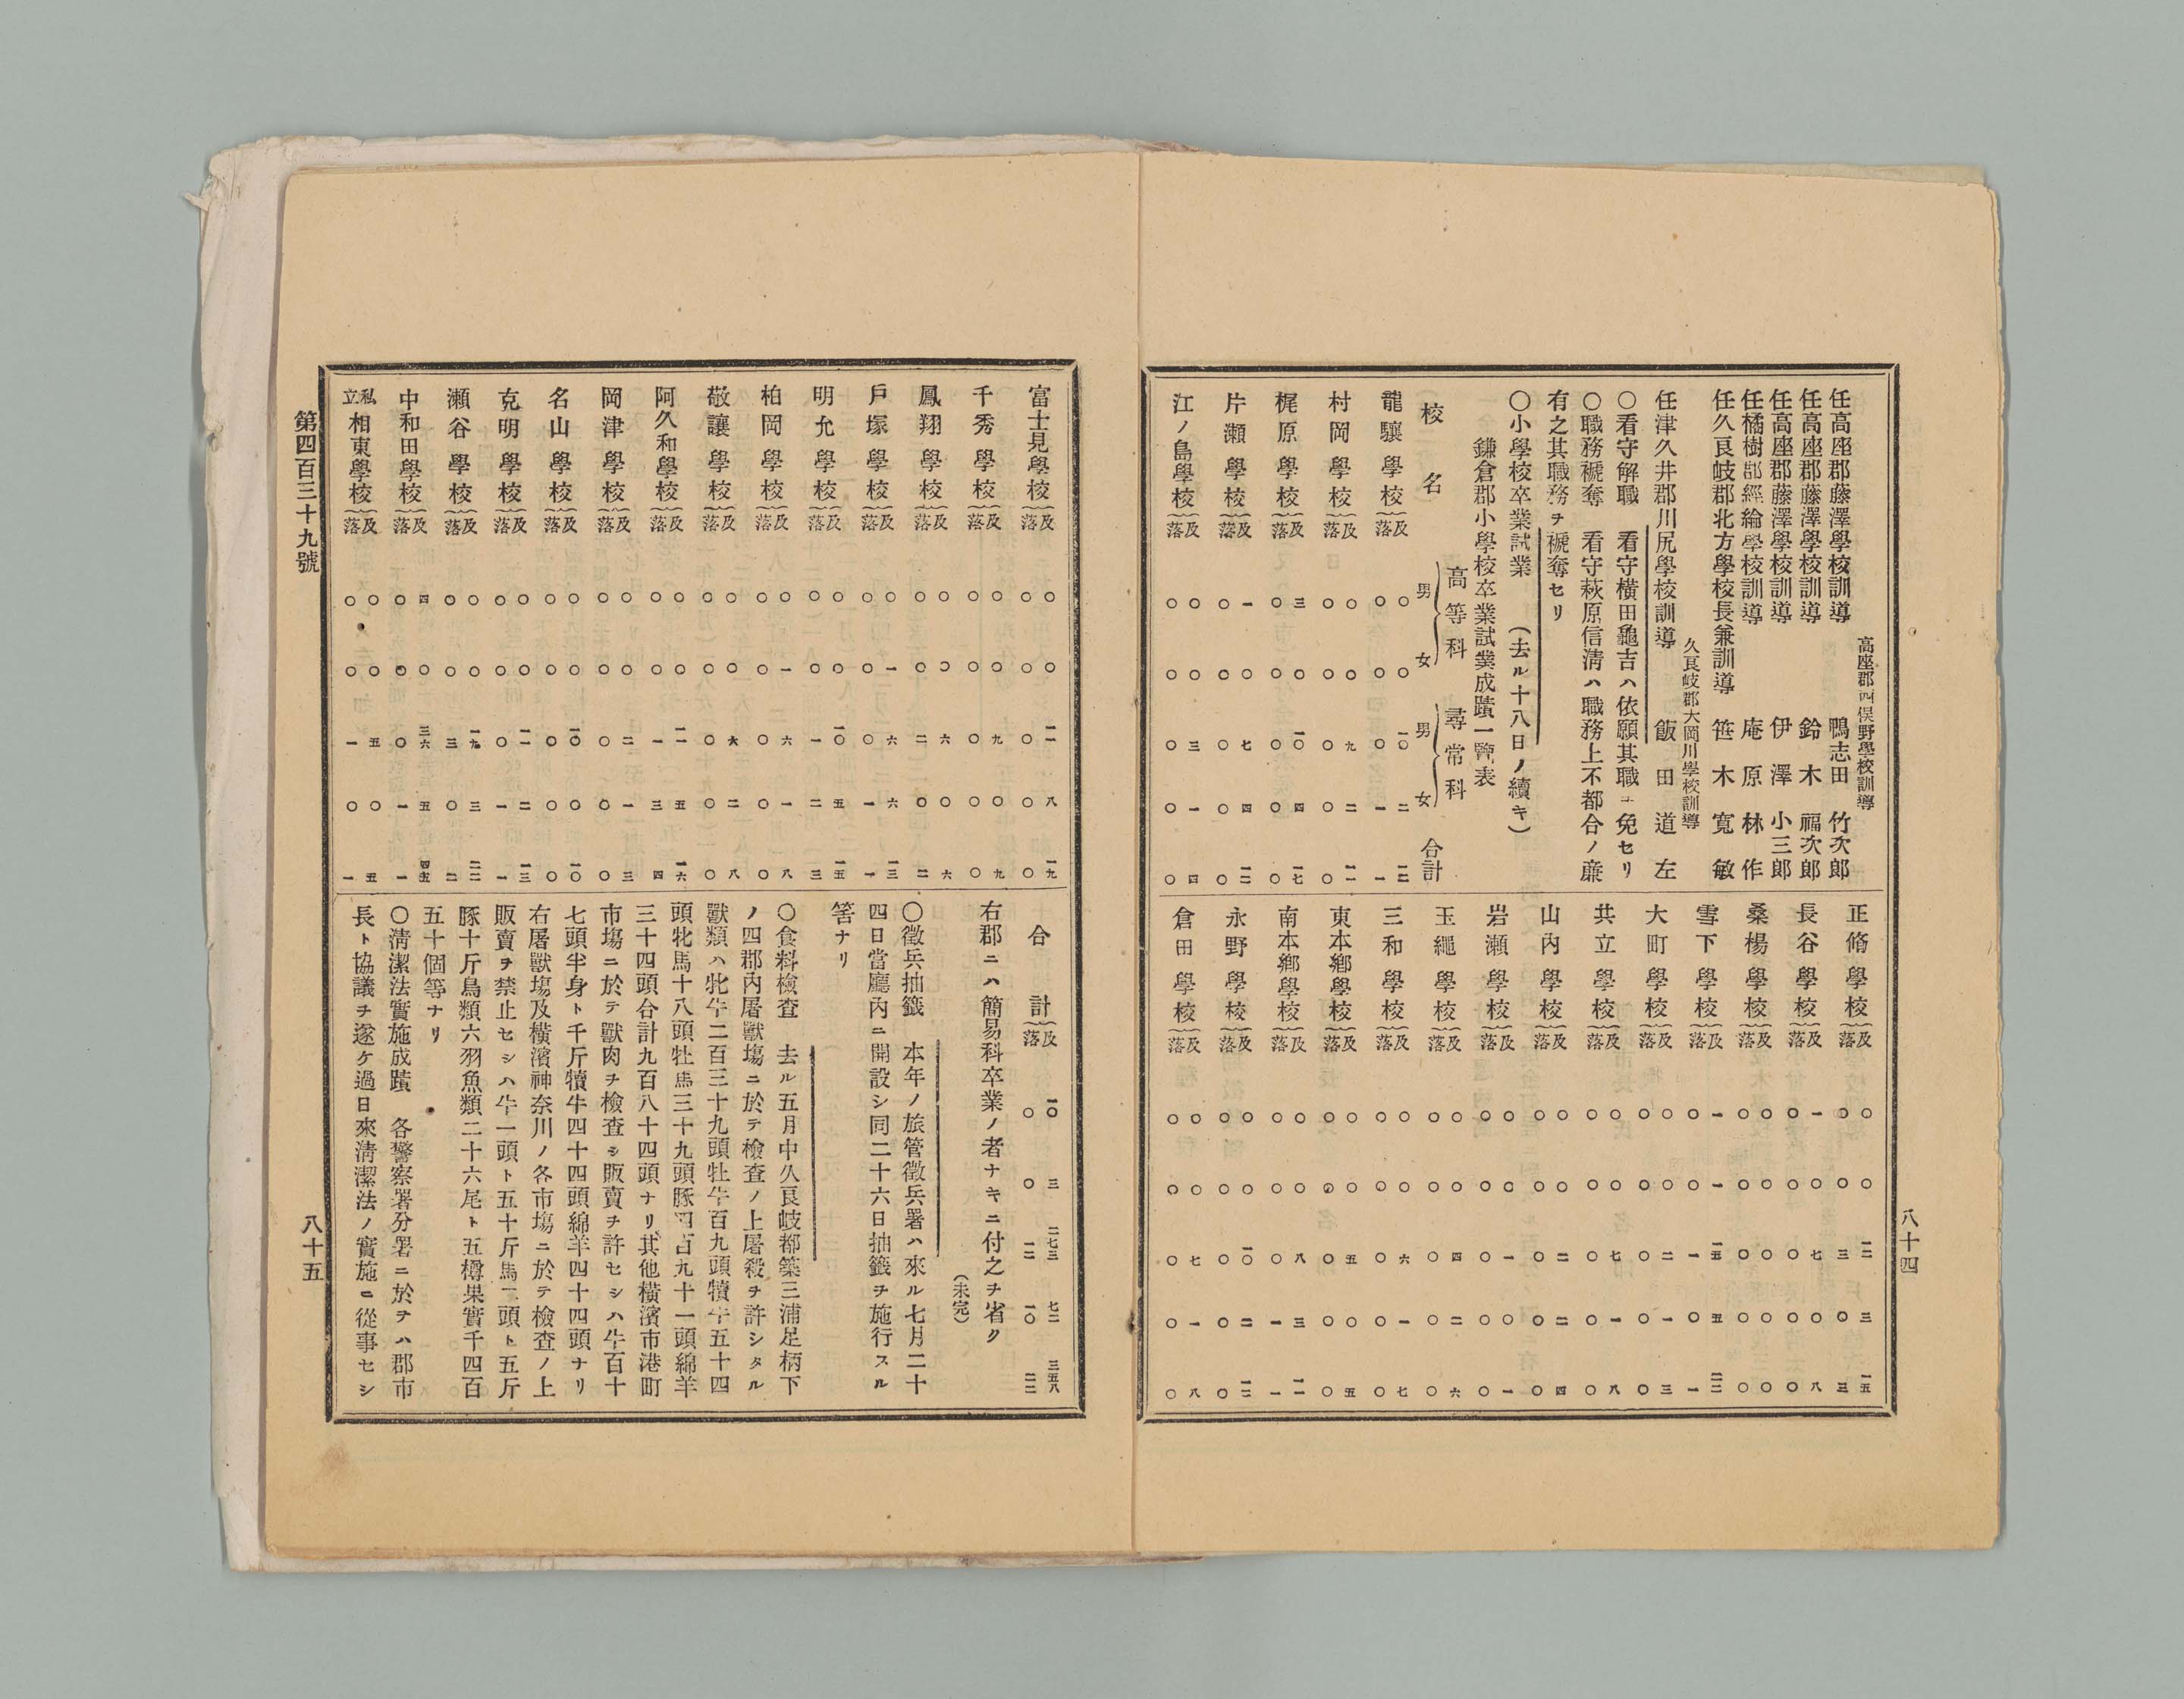 八十四
高座郡四俣野學校訓導
任高座郡藤澤學校訓導 鴨志田竹次郎
任高座郡藤澤學校訓導 鈴木福次郎
任高座郡藤澤學校訓導 伊澤小三郎
任橘樹郡經綸學校訓導 庵原林作
任久良岐郡北方學校長兼訓導 笹木寬敏
久良岐郡大岡川學校訓導
任津久井郡川尻學校訓導 飯田道左
○看守解職 看守橫田龜吉ハ依願其職ヲ免セリ
○職務褫奪 看守萩原信淸ハ職務上不都合ノ廉
有之其職務ヲ褫奪セリ
○小學校卒業試業 (去ル十八日ノ續キ)
鎌倉郡小學校卒業試業成蹟一覽表
校名 高等科 男 女 尋常科 男 女 合計
龍驤學校 及 ○ ○ 一○ 二 一二
落 ○ ○ ○ 一 一
村岡學校 及 ○ ○ 九 二 一一
落 ○ ○ ○ ○ ○
梶原學校 及 三 ○ 一○ 四 一七
落 ○ ○ ○ ○ ○
片瀨學校 及 一 ○ 七 四 一二
落 ○ ○ ○ ○ ○
江ノ島學校 及 ○ ○ 三 一 四
落 ○ ○ ○ ○ ○
正脩學校 及 ○ ○ 一二 三 一五
落 ○ ○ 三 ○ 三
長谷學校 及 一 ○ 七 ○ 八
落 ○ ○ ○ ○ ○
桑楊學校 及 ○ ○ ○ ○ ○
落 ○ ○ ○ ○ ○
雪下學校 及 一 一 一五 五 二二
落 ○ ○ 一 ○ 一
大町學校 及 ○ ○ 二 一 三
落 ○ ○ ○ ○ ○
共立學校 及 ○ ○ 七 一 八
落 ○ ○ ○ ○ ○
山內學校 及 ○ ○ 二 二 四
落 ○ ○ ○ ○ ○
岩瀨學校 及 ○ ○ 一 ○ 一
落 ○ ○ ○ ○ ○
玉繩學校 及 ○ ○ 四 二 六
落 ○ ○ ○ ○ ○
三和學校 及 ○ ○ 六 一 七
落 ○ ○ ○ ○ ○
東本鄕學校 及 ○ ○ 五 ○ 五
落 ○ ○ ○ ○ ○
南本鄕學校 及 ○ ○ 八 三 一一
落 ○ ○ ○ 一 一
永野學校 及 ○ ○ 一○ 二 一二
落 ○ ○ ○ ○ ○
倉田學校 及 ○ ○ 七 一 八
落 ○ ○ ○ ○ ○
富士見學校 及 ○ ○ 一一 八 一九
落 ○ ○ ○ ○ ○
千秀學校 及 ○ ○ 九 ○ 九
落 ○ ○ ○ ○ ○
鳳翔學校 及 ○ ○ 六 ○ 六
落 ○ ○ 二 ○ 二
戶塚學校 及 ○ 一 六 六 一三
落 ○ ○ ○ 一 一
明允學校 及 ○ ○ 一○ 五 一五
落 ○ ○ 一 二 三
柏岡學校 及 ○ 一 六 一 八
落 ○ ○ ○ ○ ○
敬讓學校 及 ○ ○ 六 二 八
落 ○ ○ ○ ○ ○
阿久和學校 及 ○ ○ 一一 五 一六
落 ○ ○ 一 三 四
岡津學校 及 ○ ○ 二 一 三
落 ○ ○ ○ ○ ○
名山學校 及 ○ ○ 一○ ○ 一○
落 ○ ○ ○ ○ ○
克明學校 及 ○ ○ 一一 二 一三
落 ○ ○ ○ 一 一
瀨谷學校 及 ○ ○ 一九 三 二二
落 ○ ○ 三 ○ 三
中和田學校 及 四 ○ 三六 五 四五
落 ○ ○ ○ 一 一
私立相東學校 及 ○ ○ 五 ○ 五
落 ○ ○ 一 ○ 一
合計 及 一○ 三 二七三 七二 三五八
落 ○ ○ 一二 一○ 二二
右郡ニハ簡易科卒業ノ者ナキニ付之ヲ省ク
(未完)
○徵兵抽籤 本年ノ旅管徵兵署ハ來ル七月二十
四日當廳內ニ開設シ同二十六日抽籤ヲ施行スル
筈ナリ
○食料檢查 去ル五月中久良岐都築三浦足柄下
ノ四郡內屠獸塲ニ於テ檢查ノ上屠殺ヲ許シタル
獸類ハ牝牛二百三十九頭牡牛百九頭犢牛五十四
頭牝馬十八頭牡馬三十九頭豚四百九十一頭綿羊
三十四頭合計九百八十四頭ナリ其他橫濱市港町
市塲ニ於テ獸肉ヲ檢查シ販賣ヲ許セシハ牛百十
七頭半身ト千斤犢牛四十四頭綿羊四十四頭ナリ
右屠獸塲及橫濱神奈川ノ各市塲ニ於テ檢查ノ上
販賣ヲ禁止セシハ牛一頭ト五十斤馬二頭ト五斤
豚十斤鳥類六羽魚類二十六尾ト五樽果實千四百
五十個等ナリ
○淸潔法實施成蹟 各警察署分署ニ於テハ郡市
長ト協議ヲ遂ケ過日來淸潔法ノ實施ニ從事セシ
第四百三十九號
八十五